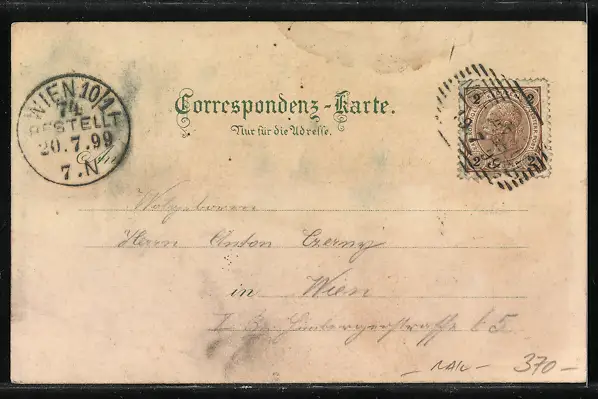 WIEN 10/1 F
74
BESTELLT
20.7.99
7.N
Correspondenz-Karte.
Nur für die Adresse.
2 2
2 2
Wolgeboren
Herrn Anton Czerny
in Wien
5
370-